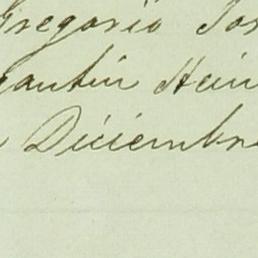 Gregorio Jos
Hein
Diciembre